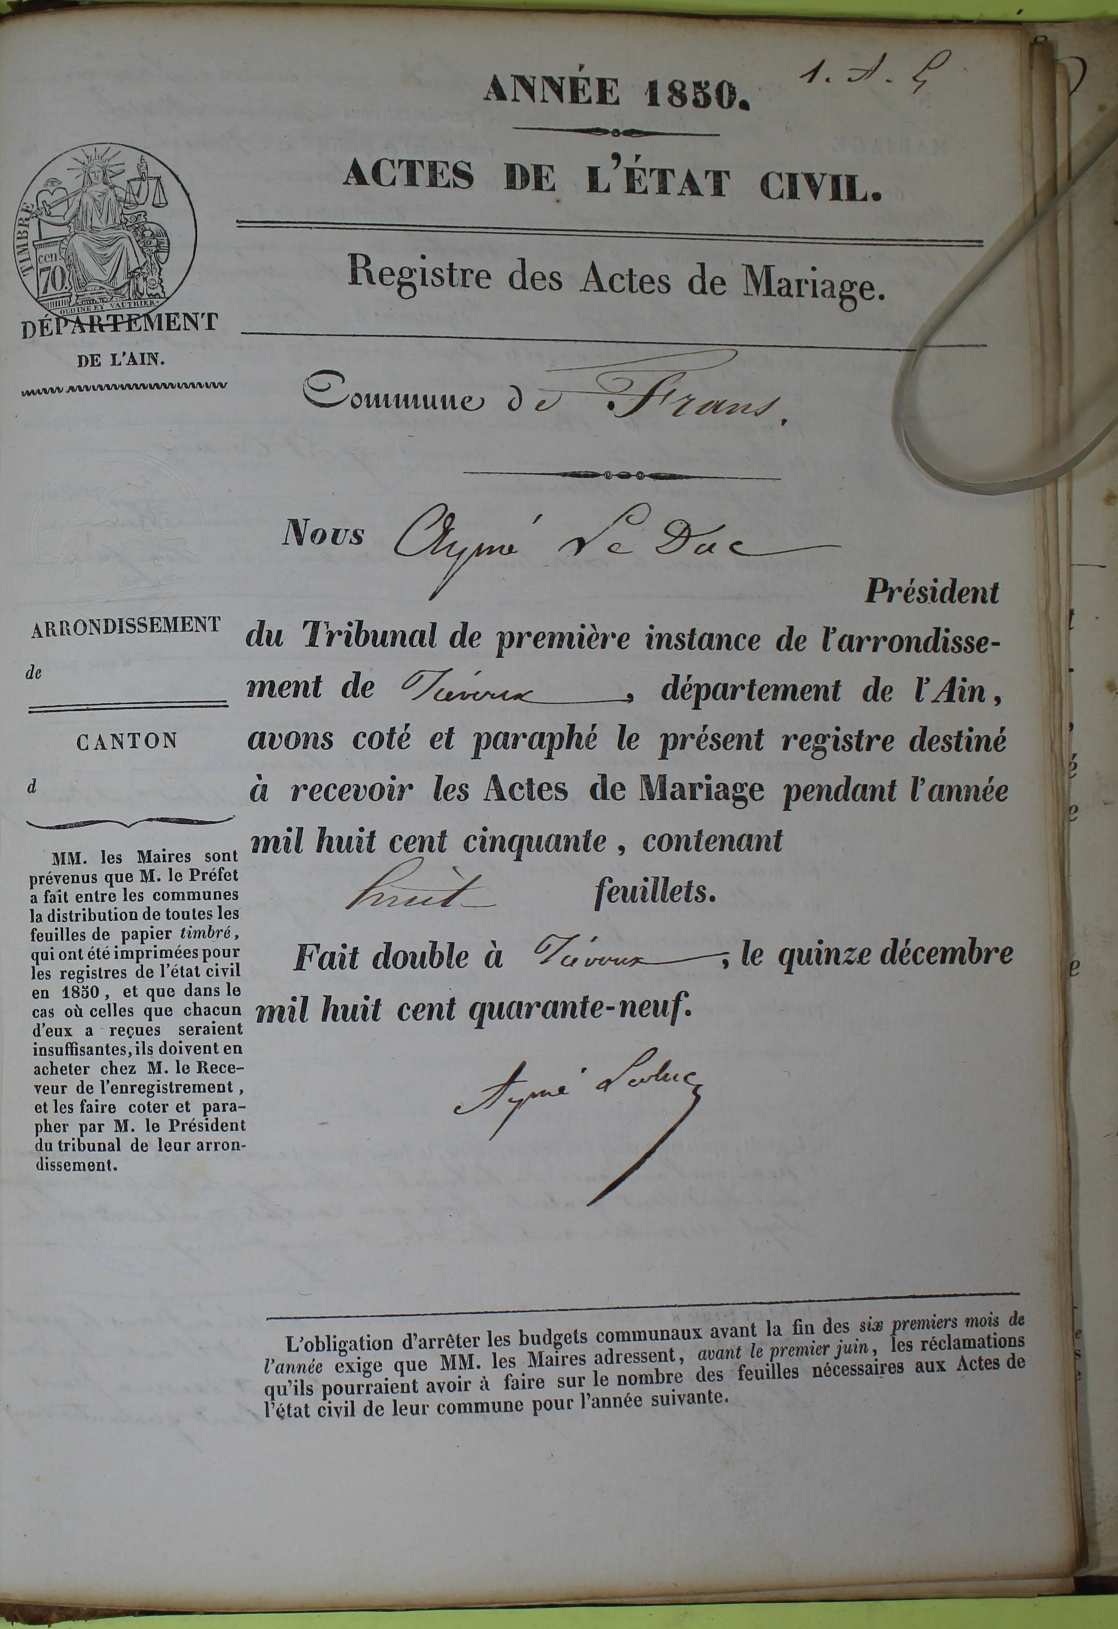 1. A. L
ANNÉE 1850.
ACTES DE L'ÉTAT CIVIL.
TIMBRE
cen
70.
Registre des Actes de Mariage.
DÉPARTEMENT
DE L'AIN.
Commune de Frans.
Nous Aymé Le Duc
Président
du Tribunal de première instance de l'arrondisse-
ment de Trévoux, département de l'Ain,
avons coté et paraphé le présent registre destiné
à recevoir les Actes de Mariage pendant l'année
mil huit cent cinquante, contenant
huit feuillets.
Fait double à Trévoux, le quinze décembre
mil huit cent quarante-neuf.
Aymé Leduc
ARRONDISSEMENT
de
CANTON
d
MM. les Maires sont
prévenus que M. le Préfet
a fait entre les communes
la distribution de toutes les
feuilles de papier timbré,
qui ont été imprimées pour
les registres de l'état civil
en 1850, et que dans le
cas où celles que chacun
d'eux a reçues seraient
insuffisantes, ils doivent en
acheter chez M. le Rece-
veur de l'enregistrement,
et les faire coter et para-
pher par M. le Président
du tribunal de leur arron-
dissement.
L'obligation d'arrêter les budgets communaux avant la fin des six premiers mois de
l'année exige que MM. les Maires adressent, avant le premier juin, les réclamations
qu'ils pourraient avoir à faire sur le nombre des feuilles nécessaires aux Actes de
l'état civil de leur commune pour l'année suivante.